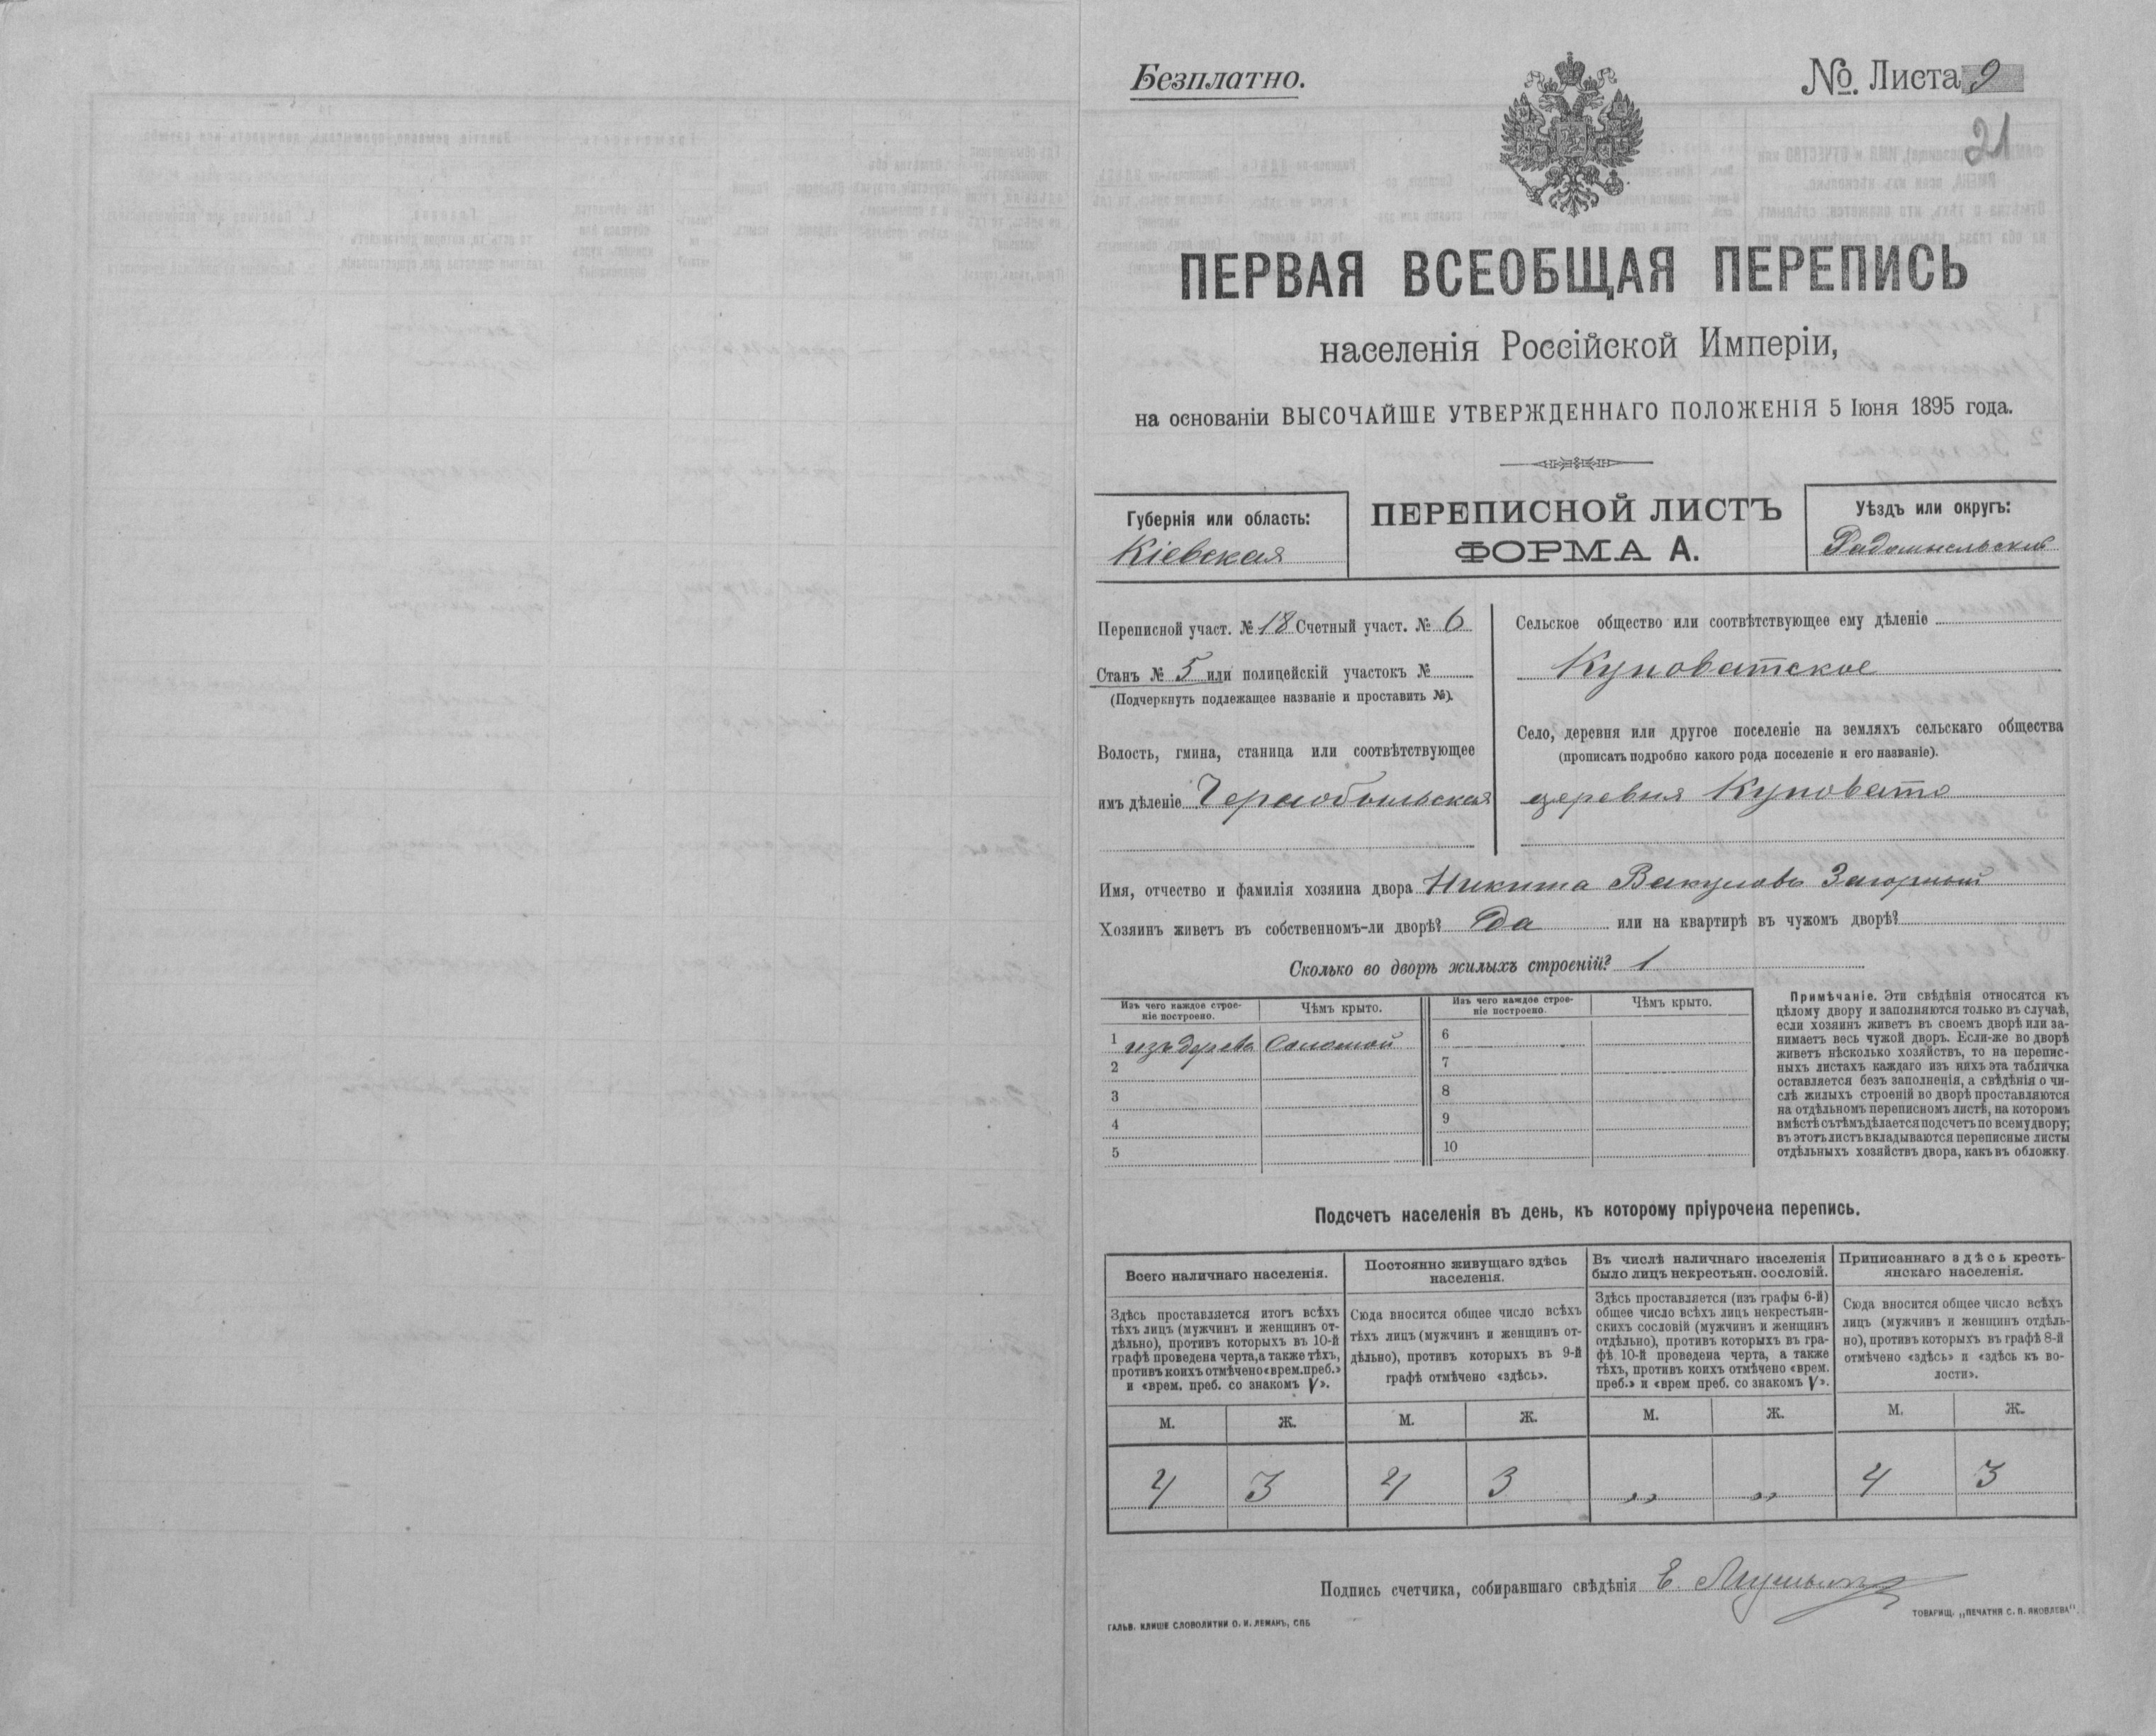 Безплатно.
№. Листа 9
21
ПЕРВАЯ ВСЕОБЩАЯ ПЕРЕПИСЬ
населенія Россійской Имперіи,
на основаніи ВЫСОЧАЙШЕ УТВЕРЖДЕННАГО ПОЛОЖЕНІЯ 5 Іюня 1895 года.
Губернія или область:
Кіевская
ПЕРЕПИСНОЙ ЛИСТЪ
ФОРМА А.
Уѣздъ или округъ:
Радомысльскій
Переписной участ. № 18 Счетный участ. № 6
Станъ № 5 или полицейскій участокъ №
(Подчеркнуть подлежащее названіе и проставить №).
Волость, гмина, станица или соотвѣтствующее
имъ дѣленіе Чернобыльская
Сельское общество или соотвѣтствующее ему дѣленіе
Куповатское
Село, деревня или другое поселеніе на земляхъ сельскаго общества
(прописать подробно какого рода поселеніе и его названіе).
деревня Куповато
Имя, отчество и фамилія хозяина двора Никита Вакуловъ Загорный
Хозяинъ живетъ въ собственномъ-ли дворѣ? Да или на квартирѣ въ чужомъ дворѣ?
Сколько во дворѣ жилыхъ строеній? 1
Изъ чего каждое строе-
ніе построено.
Чѣмъ крыто.
Изъ чего каждое строе-
ніе построено.
Чѣмъ крыто.
1 изъ дерева Соломой
2
3
4
5
6
7
8
9
10
Примѣчаніе. Эти свѣдѣнія относятся къ
цѣлому двору и заполняются только въ случаѣ,
если хозяинъ живетъ въ своемъ дворѣ или за-
нимаетъ весь чужой дворъ. Если-же во дворѣ
живетъ нѣсколько хозяйствъ, то на перепис-
ныхъ листахъ каждаго изъ нихъ эта табличка
оставляется безъ заполненія, а свѣдѣнія о чи-
слѣ жилыхъ строеній во дворѣ проставляются
на отдѣльномъ переписномъ листѣ, на которомъ
вмѣстѣ съ тѣмъ дѣлается подсчетъ по всему двору;
въ этотъ листъ вкладываются переписные листы
отдѣльныхъ хозяйствъ двора, какъ въ обложку.
Подсчетъ населенія въ день, къ которому пріурочена перепись.
Всего наличнаго населенія.
Здѣсь проставляется итогъ всѣхъ
тѣхъ лицъ (мужчинъ и женщинъ от-
дѣльно), противъ которыхъ въ 10-й
графѣ проведена черта, а также тѣхъ,
противъ коихъ отмѣчено «врем. преб.»
и «врем. преб. со знакомъ V».
М. Ж.
4 3
Постоянно живущаго здѣсь
населенія.
Сюда вносится общее число всѣхъ
тѣхъ лицъ (мужчинъ и женщинъ от-
дѣльно), противъ которыхъ въ 9-й
графѣ отмѣчено «здѣсь».
М. Ж.
4 3
Въ числѣ наличнаго населенія
было лицъ некрестьян. сословій.
Здѣсь проставляется (изъ графы 6-й)
общее число всѣхъ лицъ некрестьян-
скихъ сословій (мужчинъ и женщинъ
отдѣльно), противъ которыхъ въ гра-
фѣ 10-й проведена черта, а также
тѣхъ, противъ коихъ отмѣчено «врем.
преб.» и «врем преб. со знакомъ V».
М. Ж.
„ „
Приписаннаго здѣсь кресть-
янскаго населенія.
Сюда вносится общее число всѣхъ
лицъ (мужчинъ и женщинъ отдѣль-
но), противъ которыхъ въ графѣ 8-й
отмѣчено «здѣсь» и «здѣсь къ во-
лости».
М. Ж.
4 3
Подпись счетчика, собиравшаго свѣдѣнія Е.
ГАЛЬВ. КЛИШЕ СЛОВОЛИТНИ О. И. ЛЕМАНЪ, СПБ
ТОВАРИЩ. „ПЕЧАТНЯ С. П. ЯКОВЛЕВА".